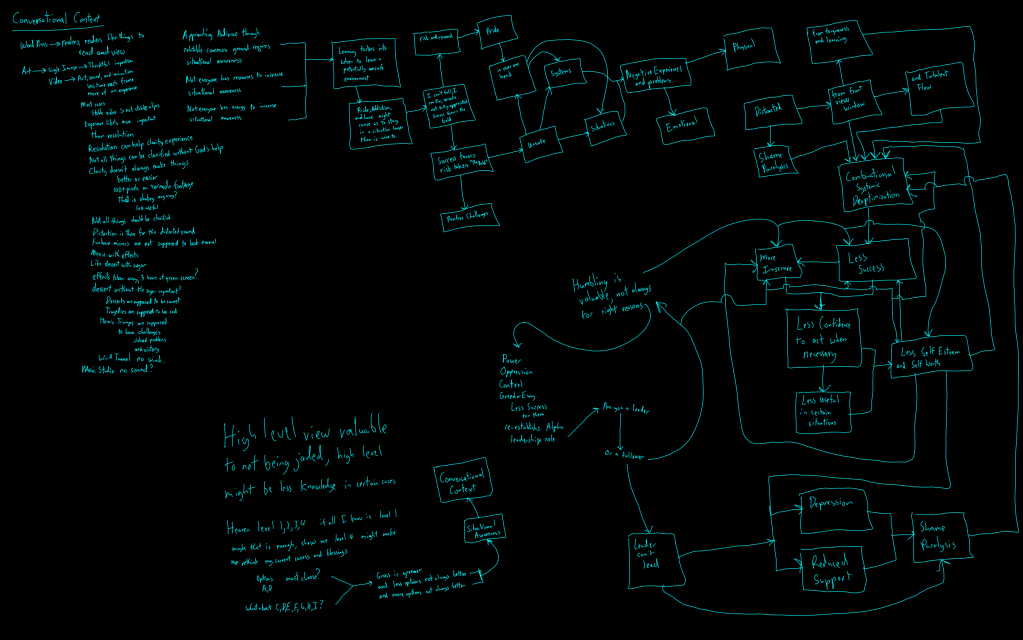 Conversational Context
WordPress → readers, readers like things to
read and view
Art → Single Image → Thoughtful inspection
Video → Art, sound, and animation
less time each frame
more of an experience
Most cases
Stable video > not stable clips
Experience likely more important
Than resolution
Resolution can help clarify experience
Not all things can be clarified without God's help
Clarity doesn't always make things
better or easier
100+ pixels on Tornado footage
That is shaking anyway?
less useful
Not all things should be clarified
Distortion is there for the distorted sound
Funhouse mirrors are not supposed to look normal
Movie with effects
Like desert with sugar
Effects taken away, 3 hours of green screen?
dessert without the sugar ingredient?
Desserts are supposed to be sweet
Tragedies are supposed to be sad
Heroic Triumphs are supposed
to have challenges
solved problems
and victory
Wind Tunnel no wind..
Music Studio no sound?
Approaching Audience through
relatable common ground requires
situational awareness
Not everyone has resources to increase
situational awareness
Not everyone has energy to increase
situational awareness
Learning factors into
when to leave a
potentially unsafe
environment
Pride, Addiction,
and love might
cause us to stay
in a situation longer
than is wise to
risk and reward
Pride
I can't fail, I
Success favors
risk taken
Positive Challenges
Unsafe
Systems
Situations
Negative Experiences
and problems
Physical
Emotional
from forgiveness
and learning
and Turbulent
Flow
from front
view
window
Distasteful
Shame
Paralysis
Combinational
Systemic
Deoptimization
More
Insecure
Less
Success
Humbling is
valuable, not always
for right reasons
Less Confidence
to act when
necessary
Less Self Esteem
and Self Worth
Less Useful
in certain
situations
Power
Oppression
Control
Greed or Envy
Less Success
for them
re-establishes Alpha
leadership role
Are you a leader
Or a follower
High level view valuable
to not being jaded, high level
might be less knowledge in certain cases
Conversational
Context
Situational
Awareness
Heaven level 1,2,3,4 if all I know is level 1
maybe that is enough, show me level 4 might make
me rethink my current success and blessings
Options must choose?
A,B
What about C,D,E,F,G,H,I?
Grass is greener
and less options not always better
and more options not always better
Leader
can't
lead
Depression
Reduced
Support
Shame
Paralysis